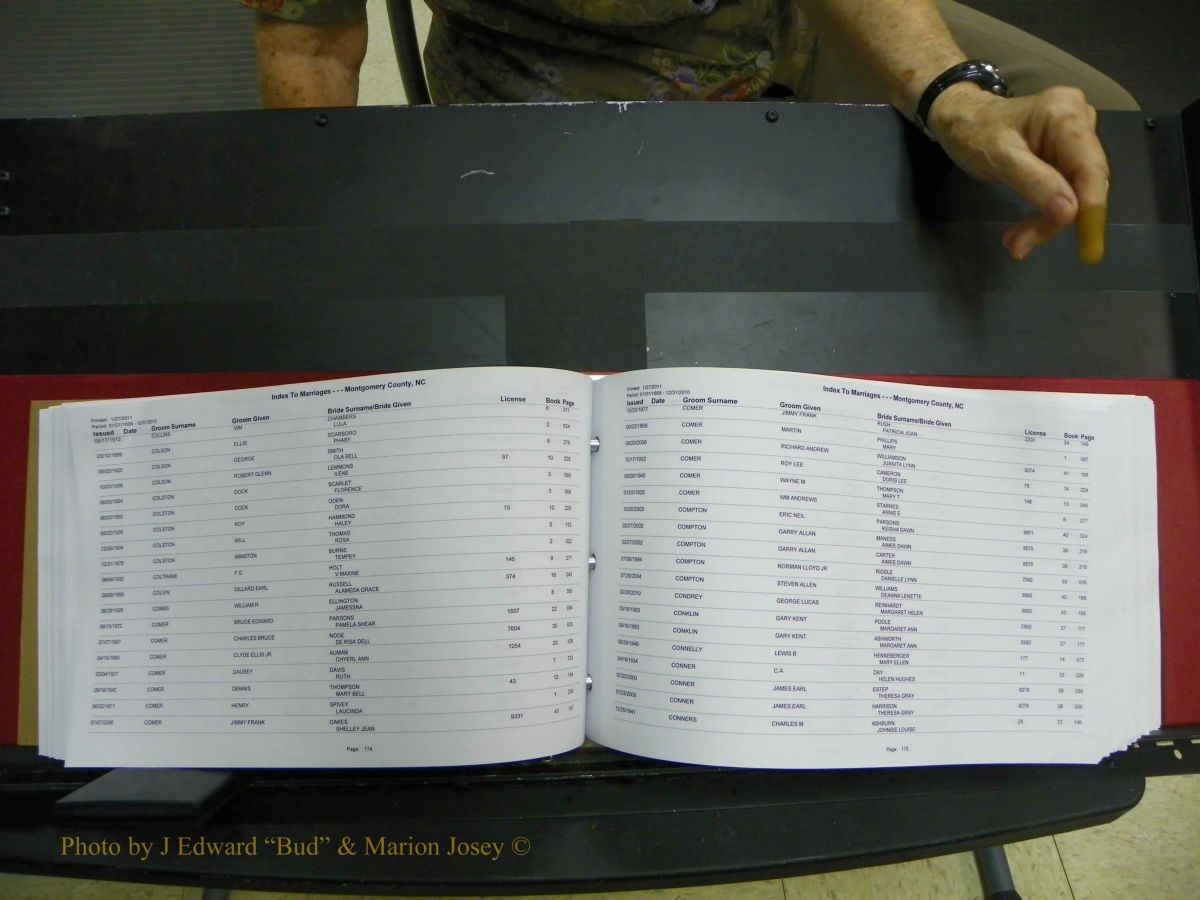 Index To Marriages - - - Montgomery County, NC
Printed: 1/27/2011
Period: 01/01/1868 - 12/31/2010
Issued Date Groom Surname Groom Given Bride Surname/Bride Given License Book Page
05/17/1912 COLLINS WM CHAMBERS 6 311
LULA
COLSON ELLIS SCARBORO 2 624
PHABY
COLSON GEORGE SMITH 8 276
OLA BELL
10/23/1935 COLSON ROBERT GLENN LEMMONS 97 10 225
ILENE
COLSTON DOCK SCARLET 3
FLORENCE
COLSTON DOCK ODEN 3
DORA
COLSTON ROY HAMMOND 79 10
HALEY
COLSTON WILL THOMAS 5 113
ROSA
COLSTON WINSTON BURNS 2 022
TEMPEY
COLTRANE F G HOLT 146 9 271
V MAXINE
COLVIN DILLARD EARL RUSSELL 374 16 043
ALAMEDA GRACE
COMBS WILLIAM R ELLINGTON 8
JAMESSNA
COMER BRUCE EDWARD PARSONS 1607 22
PAMELA SHEAR
COMER CHARLES BRUCE NOOE 7604 35
DE RISA DELL
04/15/1969 COMER CLYDE ELLIS JR AUMAN 1254 20
CHYERL ANN
03/04/1921 COMER DAUSEY DAVIS 7
RUTH
09/16/1942 COMER DENNIS THOMPSON 43 12
MARY BELL
06/02/1871 COMER HENRY SPIVEY 1
LAUCINDA
07/07/2006 COMER JIMMY FRANK OAKES 9331 41
SHELLEY JEAN
Page: 174
Index To Marriages - - - Montgomery County, NC
Printed: 1/27/2011
Period: 01/01/1868 - 12/31/2010
Issued Date Groom Surname Groom Given Bride Surname/Bride Given License Book Page
10/25/1977 COMER JIMMY FRANK RUSH 2200 24 149
PATRICIA JOAN
09/23/1869 COMER MARTIN PHILLIPS 1 087
MARY
09/29/2006 COMER RICHARD ANDREW WILLIAMSON 9374 41 198
JUANITA LYNN
10/17/1952 COMER ROY LEE CAMERON 76 14 224
DORIS LEE
09/29/1945 COMER WAYNE M THOMPSON 148 13 045
MARY T
01/03/1925 COMER WM ANDREWS STARNES 8 277
ANNIE E
10/30/2003 COMPTON ERIC NEIL PARSONS 8871 40 024
KEISHA DAWN
02/27/2002 COMPTON GARRY ALLAN MANESS 8575 39 219
AIMEE DAWN
02/27/2002 COMPTON GARRY ALLAN CARTER 8575 39 219
AIMEE DAWN
07/08/1994 COMPTON NORMAN LLOYD JR RIDDLE 7042 33 018
DANIELLE LYNN
07/26/2004 COMPTON STEVEN ALLEN WILLIAMS 8992 40 188
DEANNA LENETTE
CONDREY GEORGE LUCAS REINHARDT 43
MARGARET HELEN
09/16/1983 CONKLIN GARY KENT POOLE 2950 27 177
MARGARET ANN
09/16/1983 CONKLIN GARY KENT ASHWORTH 2950 27 177
MARGARET ANN
CONNELLY LEWIS B HENNEBERGER 177 14 072
MARY ELLEN
04/19/1934 CONNER C A DAY 71 10
HELEN HUGHES
07/25/2000 CONNER JAMES EARL ESTEP 8279 38 039
THERESA GRAY
07/25/2000 CONNER JAMES EARL HARRISON 8279 38 039
THERESA GRAY
12/25/1941 CONNERS CHARLES M ASHBURN 25 12 146
JOHNSIE LOUISE
Page: 175
Photo by J Edward “Bud” & Marion Josey ©